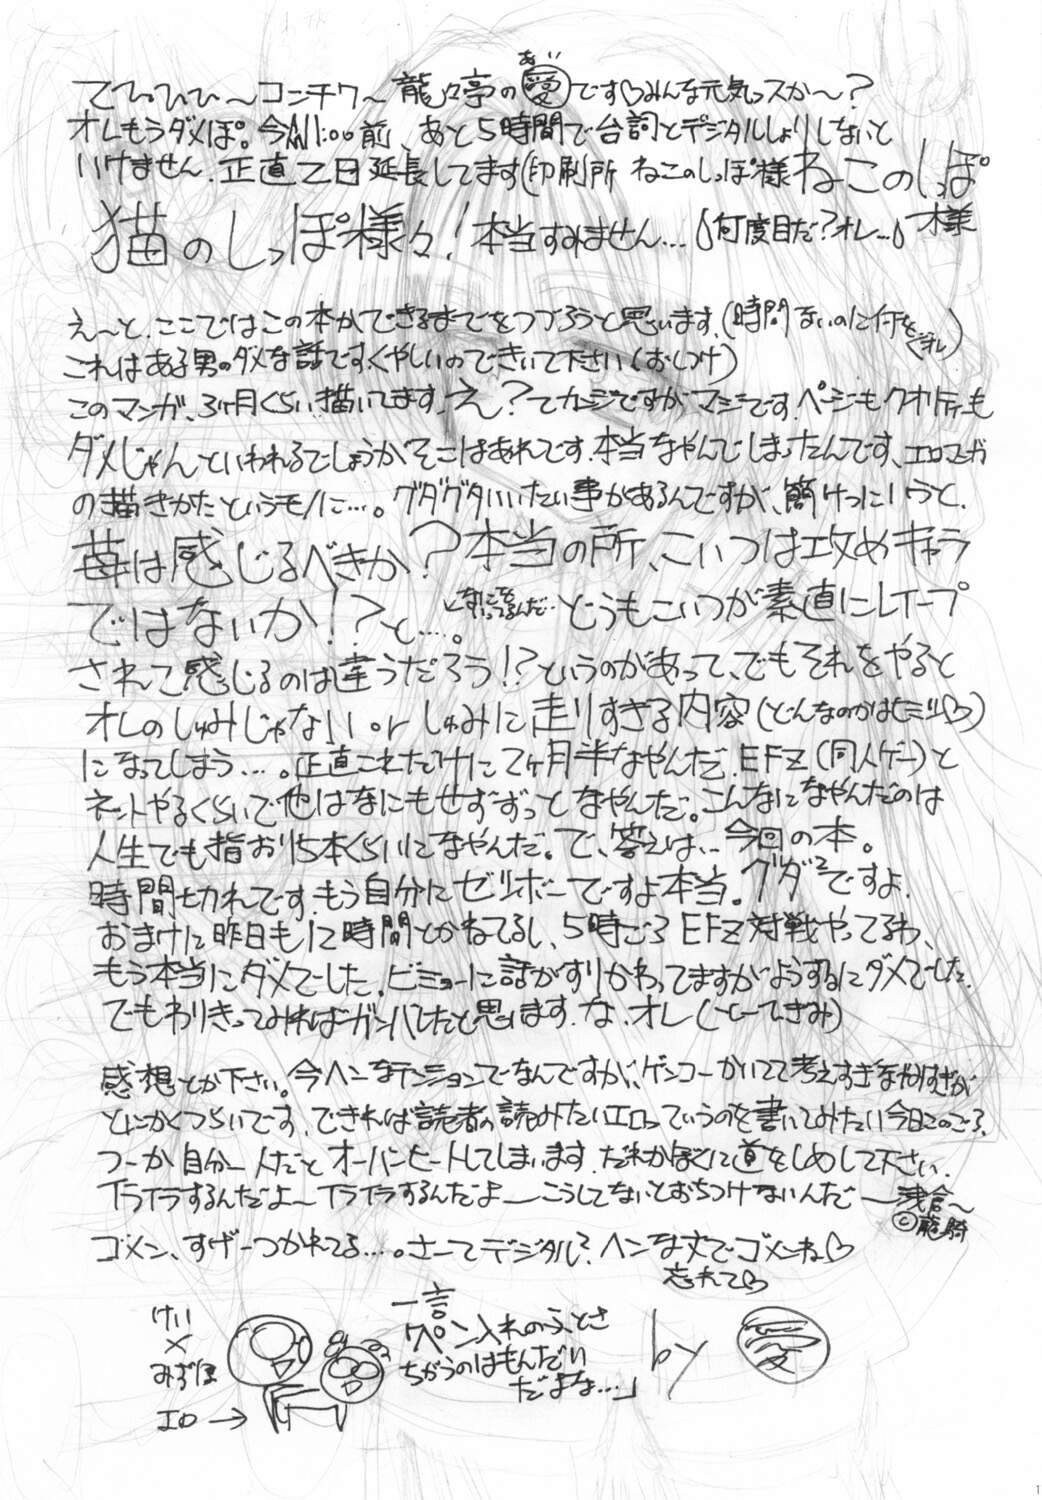 あい
てひひひ～コンチワ～龍々亭の愛です♡みんな元気っスか～?
オレもうダメぽ。今AM1:00前、あと5時間で台詞とデジタルしょりしないと
いけません.正直乙日延長してます(印刷所 ねこのしっぽ様ねこのしっぽ様
猫のしっぽ様々!本当すみません…(何度目だ?オレ…)
え～と.ここではこの本ができるまでをつづろうと思います.(時間ないのに何を…オレ)
これはある男のダメな話ですくやしいのできいて下さい(おしつけ)
このマンガ、3ヶ月くらい描いてます.え?てカンジですがマジです.ページもクオリティーも
ダメじゃんといわれるでしょうがそこはあれです.本当なやんでしまったんです、エロマンガ
の描きかたというモノに…。グダグダいいたい事があるんですが、簡けつにいうと、
苺は感じるべきか?本当の所、こいつは攻めキャラ
ではないか!?と…。なにをいってるんだ…どうもこいつが素直にレイプ
されて感じるのは違うだろう!?というのがあって、でもそれをやると
オレのしゅみじゃない or しゅみに走りすぎる内容(どんなのかはヒミツ♡)
になってしまう…。正直これだけに2ヶ月半なやんだ.EFZ(同人ゲー)と
ネットやるくらいで他はなにもせずずっとなやんだ。こんなになやんだのは
人生でも指おり5本くらいになやんだ。で、答えは、、今回の本。
時間切れです.もう自分にゼツボーですよ本当。グダ2ですよ.
おまけに昨日も12時間とかねてるし、5時ごろEFZ対戦やってるわ、
もう本当にダメでした.ビミョーに話がすりかわってますがようするにダメでした.
でもわりきってみればガンバしたと思います.な.オレ(とーてきみ)
感想とか下さい。今ヘンなテンションでなんですが、ゲンコーかいてて考えすぎなやみすぎが
とにかくつらいです、できれば読者の読みたいエロっていうのを書いてみたい今日このごろ、
つーか自分一人だとオーバーヒートしてしまいます.だれかぼくに道をしめして下さい.
イライラするんだよ～イライラするんだよ～こうしてないとおちつけないんだ～浅倉～
©龍騎
ゴメン、すげーつかれてる…。さーてデジタル?ヘンな文でゴメンね♡
忘れて♡
けい
×
みずほ
エロ→
一言
「ペン入れのふとさ
ちがうのはもんだい
だよな…」
by 愛